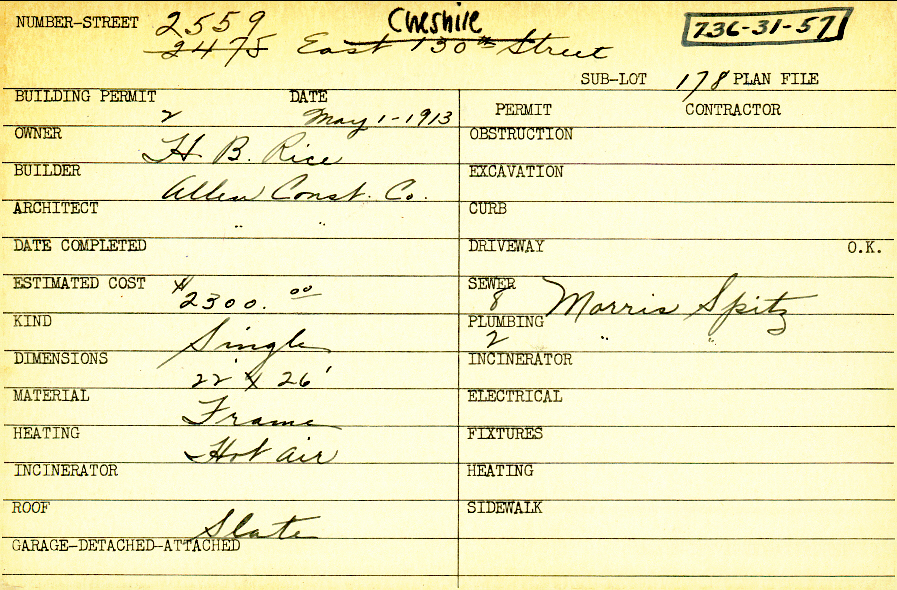 NUMBER-STREET 2559 Cheshire
2475 East 130th Street
736-31-57
SUB-LOT 178 PLAN FILE
BUILDING PERMIT DATE
2 May 1-1913
PERMIT CONTRACTOR
OWNER H. B. Rice
OBSTRUCTION
BUILDER Allen Const. Co.
EXCAVATION
ARCHITECT " "
CURB
DATE COMPLETED
DRIVEWAY O.K.
ESTIMATED COST $2300.00
SEWER 8 Morris Spitz
KIND Single
PLUMBING 2 " "
DIMENSIONS 22' X 26'
INCINERATOR
MATERIAL Frame
ELECTRICAL
HEATING Hot Air
FIXTURES
INCINERATOR
HEATING
ROOF Slate
SIDEWALK
GARAGE-DETACHED-ATTACHED